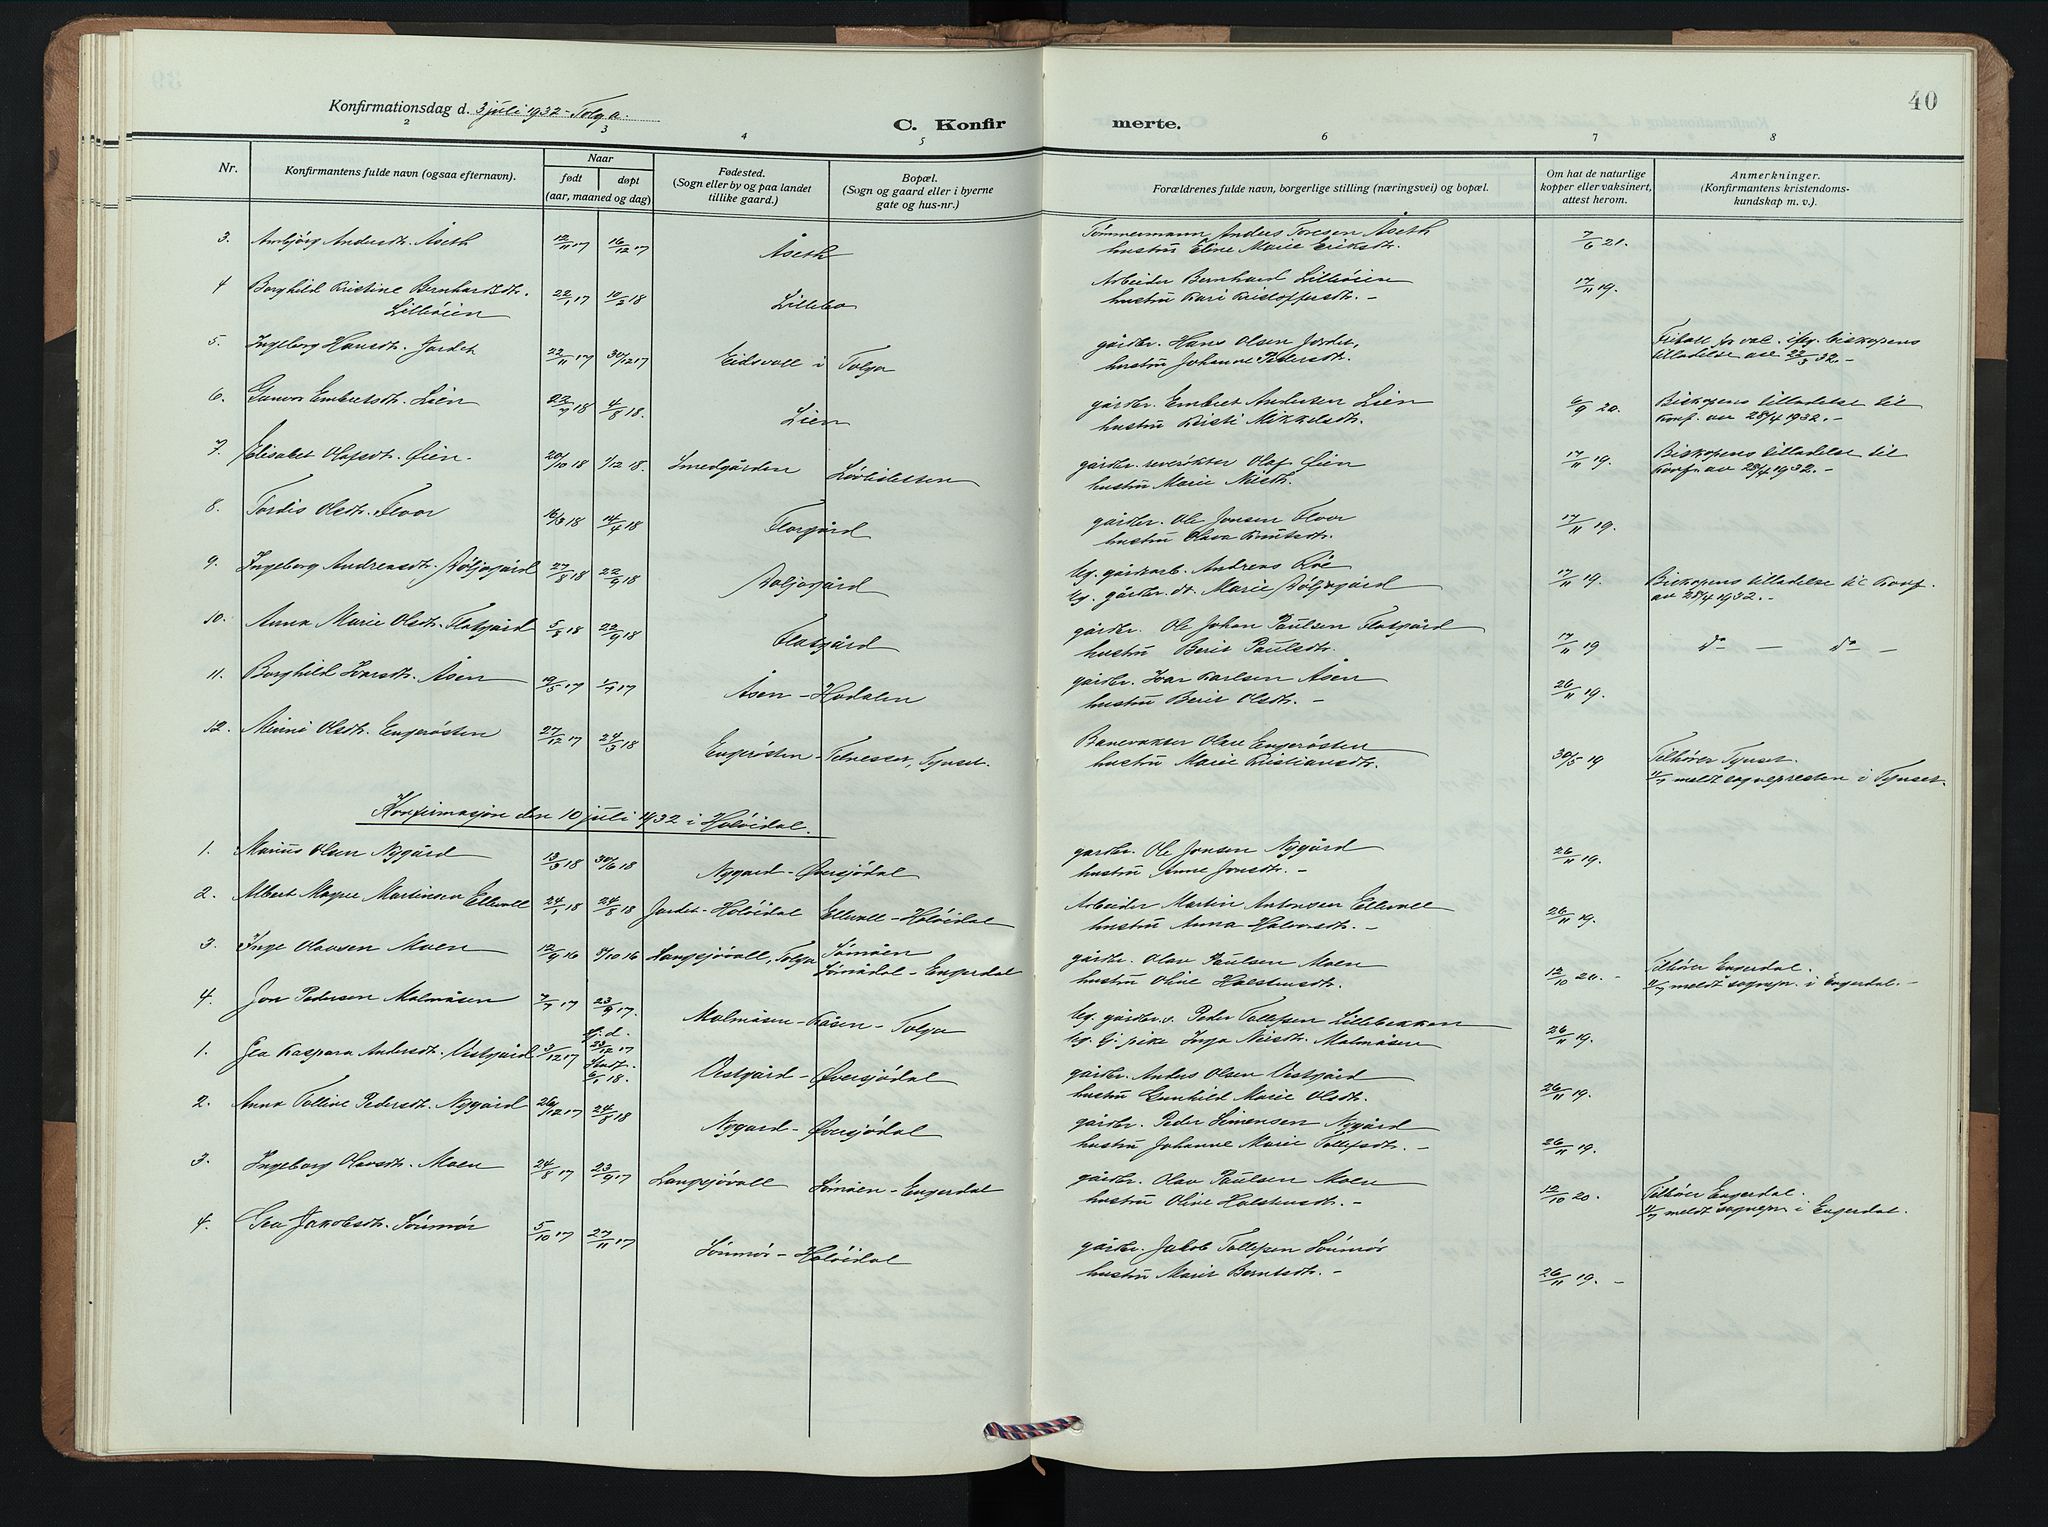 40
Konfirmationsdag d. 3 juli 1932 - Tolga.
C. Konfirmerte.
2 3 4 5 6 7 8
Nr.
Konfirmantens fulde navn (ogsaa efternavn).
Naar
født
døpt
(aar, maaned og dag)
Fødested.
(Sogn eller by og paa landet
tillike gaard.)
Bopæl.
(Sogn og gaard eller i byerne
gate og hus-nr.)
Forældrenes fulde navn, borgerlige stilling (næringsvei) og bopæl.
Om hat de naturlige
kopper eller vaksinert,
attest herom.
Anmerkninger.
(Konfirmantens kristendoms-
kundskap m. v.).
3. Ambjörg Andersdt. Åseth 12/11 17 16/12 17 Åseth
Tömmermann Anders Toresen Åseth
hustru Eline Marie Eriksdt. 7/6 21.
4 Borghild Kristine Bernhardsdt. 22/1 17 10/2 18 Lillebo
Lilleöien
Arbeider Bernhard Lilleöien
hustru Kari Kristoffersdt. - 17/11 19.
5. Ingeborg Hansdt. Jordet 22/11 17 30/12 17 Eidsvoll i Tolga
gårdbr. Hans Olsen Jordet,
hustru Johanne Pedersdt.
biskopens
tilladelse av 22/3 32. -
6. Gunvor Embretsdt. Lien 22/7 18 4/8 18. Lien
gårdbr. Embret Andersen Lien
hustru Kristi Mikkelsdt. 6/9 20.
Biskopens tilladelse til
konf. av 28/4 1932. -
7. Elisabet Olafsdt. Öien. 20/10 18 1/12 18. Smedgården Lövhletten
gårdbr. Olaf Öien
hustru Marie Nilsdt. 17/11 19.
Biskopens tilladelse til
konf. av 28/4 1932. -
8. Tordis Olsdt. Floor 16/3 18 14/4 18 Florgård
gårdbr. Ole Jonsen Floor
hustru Olava Knutsdt. 17/11 19.
9. Ingeborg Andreasdt. 27/8 18 22/9 18
Ug. gårdarb. Andreas
Ug. gårdbr. dt. Marie 17/11 19.
Biskopens tilladelse til konf.
av 28/4 1932. -
10. Anna Marie Olsdt. Flatgård 5/8 18 22/9 18 Flatgård
gårdbr. Ole Johan Paulsen Flatgård
hustru Berit Paulsdt. 17/11 19 do - do -
11. Borghild Ivarsdt. Åsen 19/5 17 1/7 17 Åsen - Hodalen
gårdbr. Ivar Karlsen Åsen
hustru Berit Olsdt. - 26/11 19.
12. Minni Olsdt. Engerösten 27/12 17 24/3 18 Engerösten - Telneset, Tynset.
Banevakter Olav Engerösten
hustru Marie Kristiansdt. 30/5 19
Tilhörer Tynset.
11/7 meldt sognepresten i Tynset.
Konfirmasjon den 10 juli 1932 i Holöidal.
1. Marius Olsen Nygård 13/3 18 30/6 18 Nygard - Översjödal
gardbr. Ole Jonsen Nygård
hustru Anne Jonsdt. - 26/11 19.
2. Albert Magne Martinsen Ellevoll 24/1 18 24/8 18 Jordet - Holöidal Ellevoll - Holöidal
Arbeider Martin Antonsen Ellevoll
hustru Anna Halvorsdt. - 26/11 19.
3. Inge Olavsen Moen 12/9 16 8/10 16 Langsjövoll, Tolga Sömåen
Sömådal - Engerdal
gårdbr. Olav Paulsen Moen
hustru Oline Halstensdt. 12/10 20. -
Tilhörer Engerdal.
11/7 meldt sognepr. i Engerdal. -
4. Jon Pedersen Malmåsen 7/7 17 23/9 17. Malmåsen - Tolga
Ug. gårdbr.s. Peder Tollefsen Lillebekken
Ug. g. pike Inga Nilsdt. Malmåsen 26/11 19.
1. Gea Kaspara Andersdt. Vestgård 3/12 17 hj. d. 23/12 17 Stadf. 6/1 18. Vestgård - Översjödal
gårdbr. Anders Olsen Vestgård
hustru Gunhild Marie Olsdt. 26/11 19.
2. Anna Polline Pedersdt. Nygård 26/12 17 24/8 18 Nygard - Översjödal
gårdbr. Peder Simensen Nygård
hustru Johanne Marie Tollefsdt. - 26/11 19.
3. Ingeborg Olavsdt. Moen 24/8 17 23/9 17 Langsjövoll Sömåen - Engerdal
gårdbr. Olav Paulsen Moen
hustru Oline Halstensdt. - 12/10 20.
Tilhörer Engerdal.
11/7 meldt sognepr. i Engerdal.
4. Gea Jakobsdt. Sönmör 5/10 17 27/11 17 Sönmör - Holöidal
gårdbr. Jakob Tollefsen Sönmör
hustru Marit Berntsdt. - 26/11 19. -